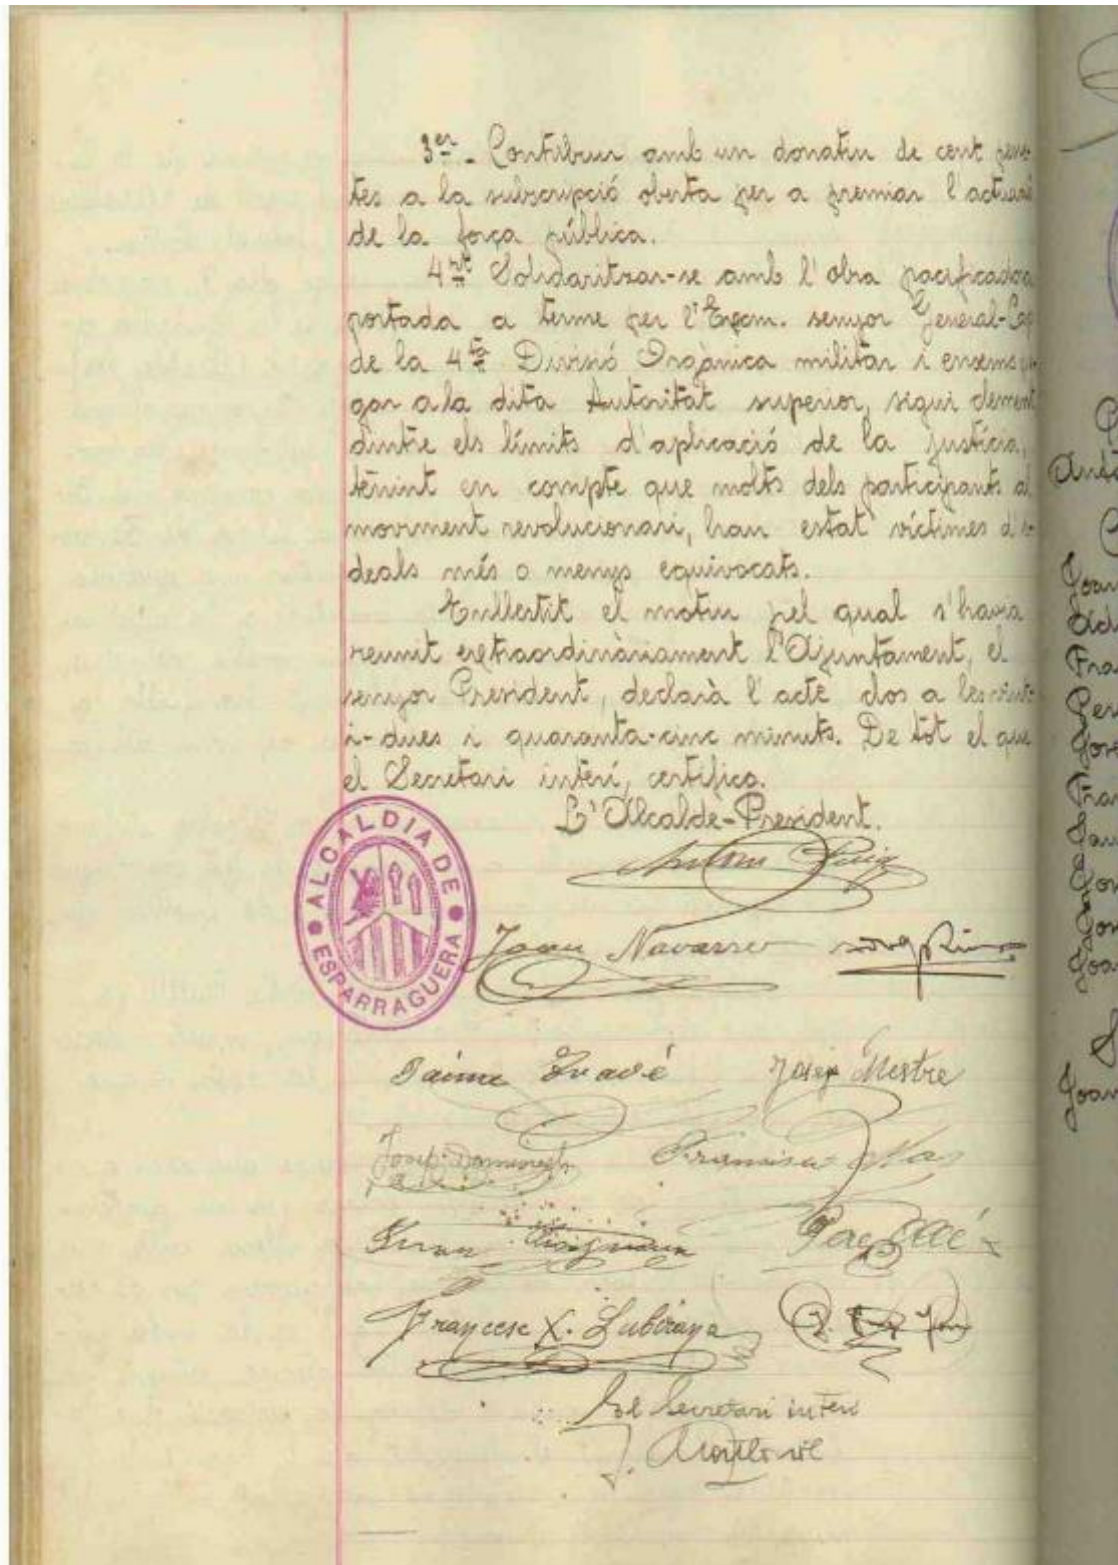 3er - Contribuir amb un donatiu de cent pese-
tes a la subscripció oberta per a premiar l'actuació
de la força pública.
4rt Solidaritzar-se amb l'obra pacificadora
portada a terme per l'Excm. senyor General-Cap
de la 4ta Divisió Orgànica militar i ensems
gar a la dita Autoritat superior, sigui clement
dintre els límits d'aplicació de la justícia,
tenint en compte que molts dels participants al
moviment revolucionari, han estat víctimes d'i-
deals més o menys equivocats.
Enllestit el motiu pel qual s'havia
reunit extraordinàriament l'Ajuntament, el
senyor President, declarà l'acte clos a les vint-
i-dues i quaranta-cinc minuts. De tot el que
el Secretari interí, certifico.
L'Alcalde-President.
Antoni Puig
ALCALDIA DE ESPARRAGUERA
Joan Navarro
Jaume Travé Josep Mestre
Josep Domenech Francisco Mas
Joan
Francesc X. Lubirana
El Secretari interí
J.